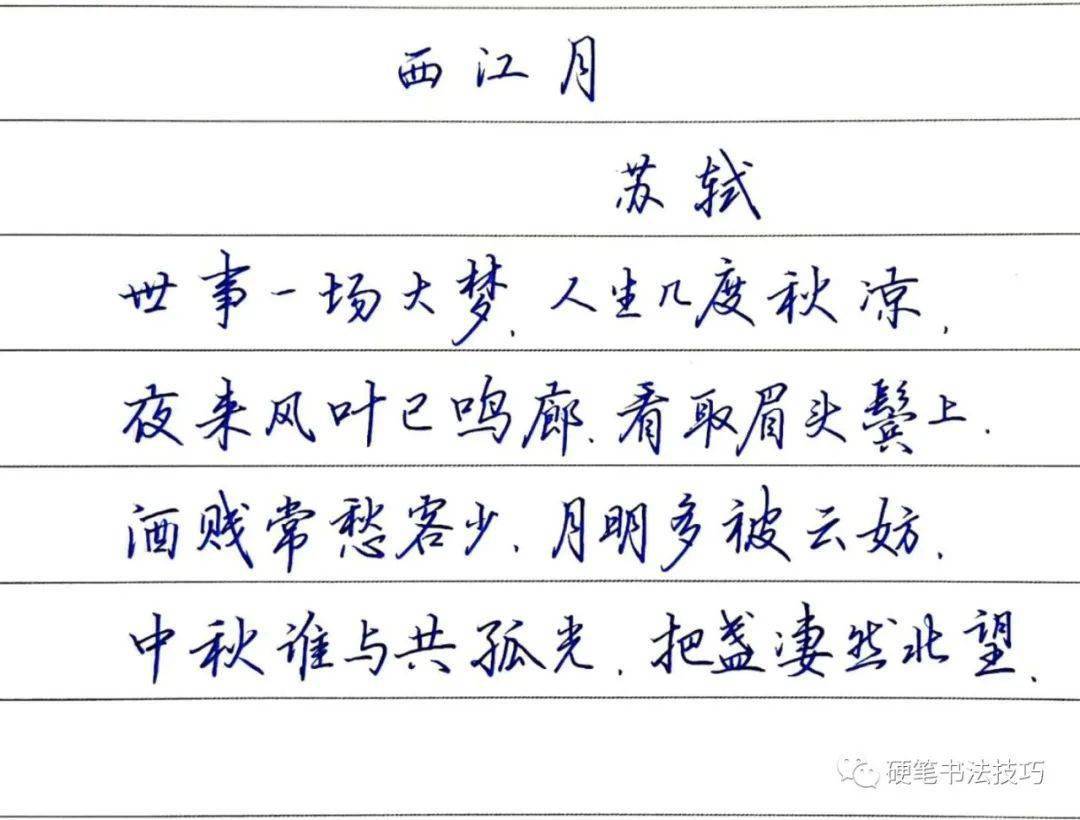 西江月
苏轼
世事一场大梦,人生几度秋凉,
夜来风叶已鸣廊.看取眉头鬓上.
酒贱常愁客少,月明多被云妨.
中秋谁与共孤光.把盏凄然北望.
硬笔书法技巧